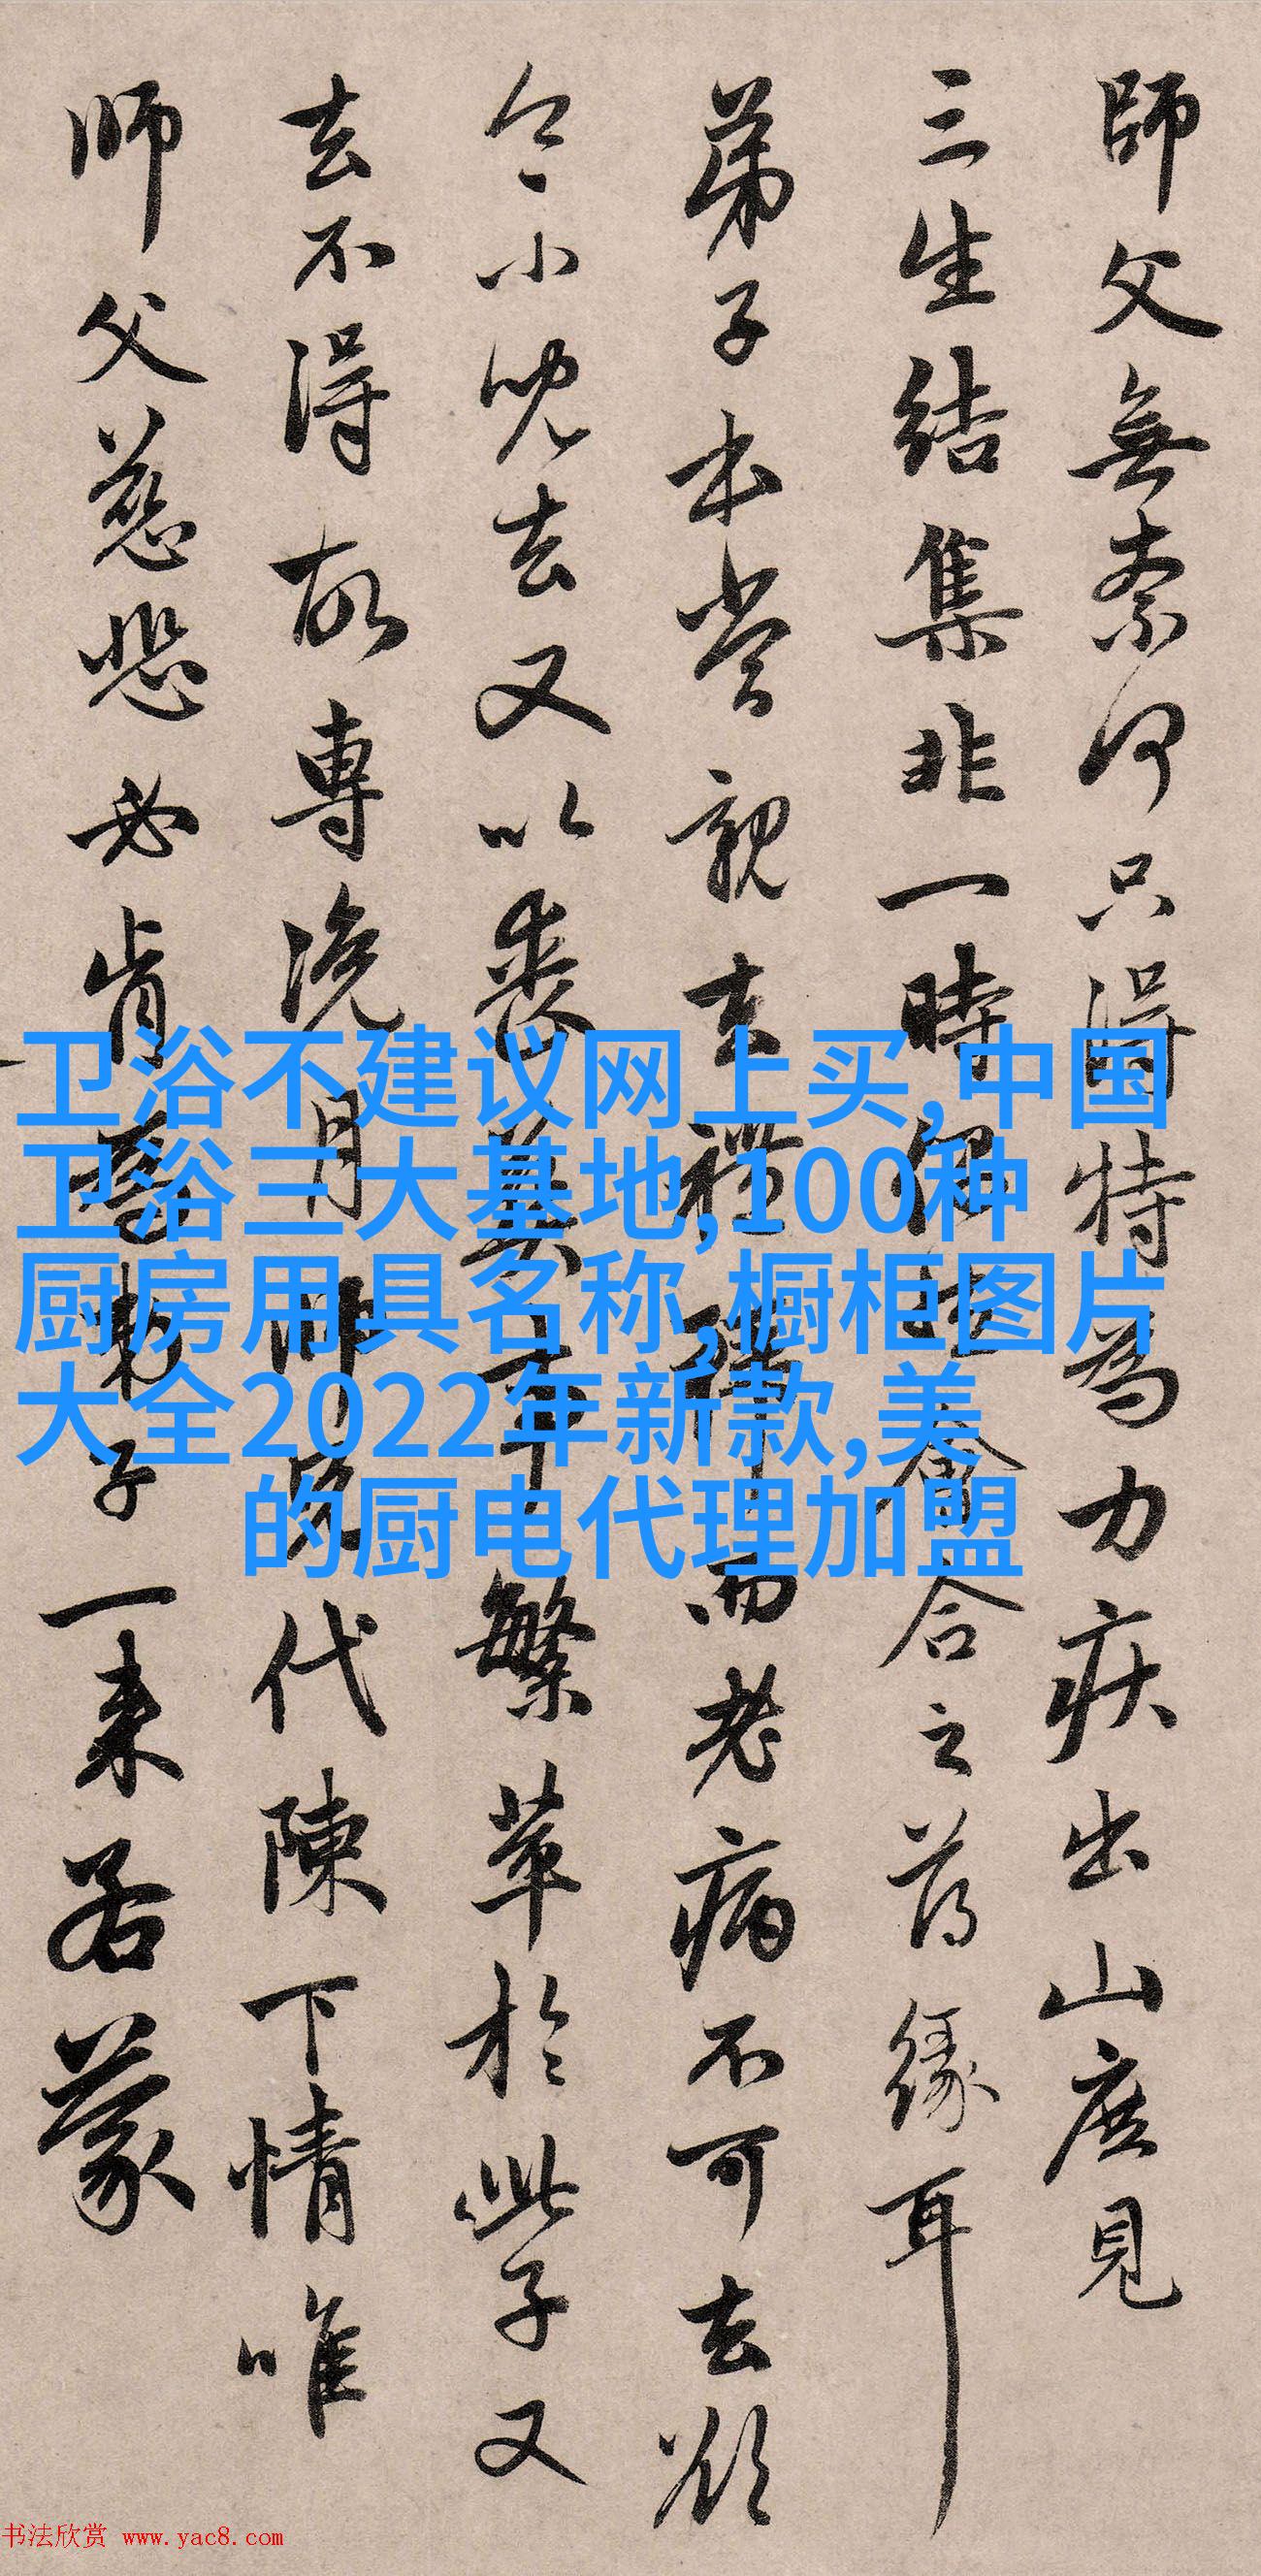 師父無奈何只得特為力疾出山庶見
三生結集非一時會合之薄緣耳
弟子本當親去禮請而老病不可去欲
令小兒去又以喪葬事繁萃於此子又
去不得故專浼月師兄代陳下情唯
師父慈悲必肯子一来若蒙
卫浴不建议网上买,中国
卫浴三大基地,100种
厨房用具名称,橱柜图片
大全2022年新款,美
的厨电代理加盟
书法欣赏 www.yac8.com